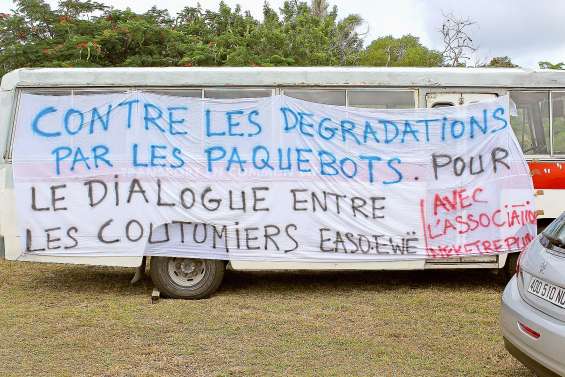 CONTRE LES DEGRADATIONS
PAR LES PAQUEBOTS. POUR
LE DIALOGUE ENTRE
LES COUTUMIERS EASO.EWË
AVEC
L'ASSOCIATION